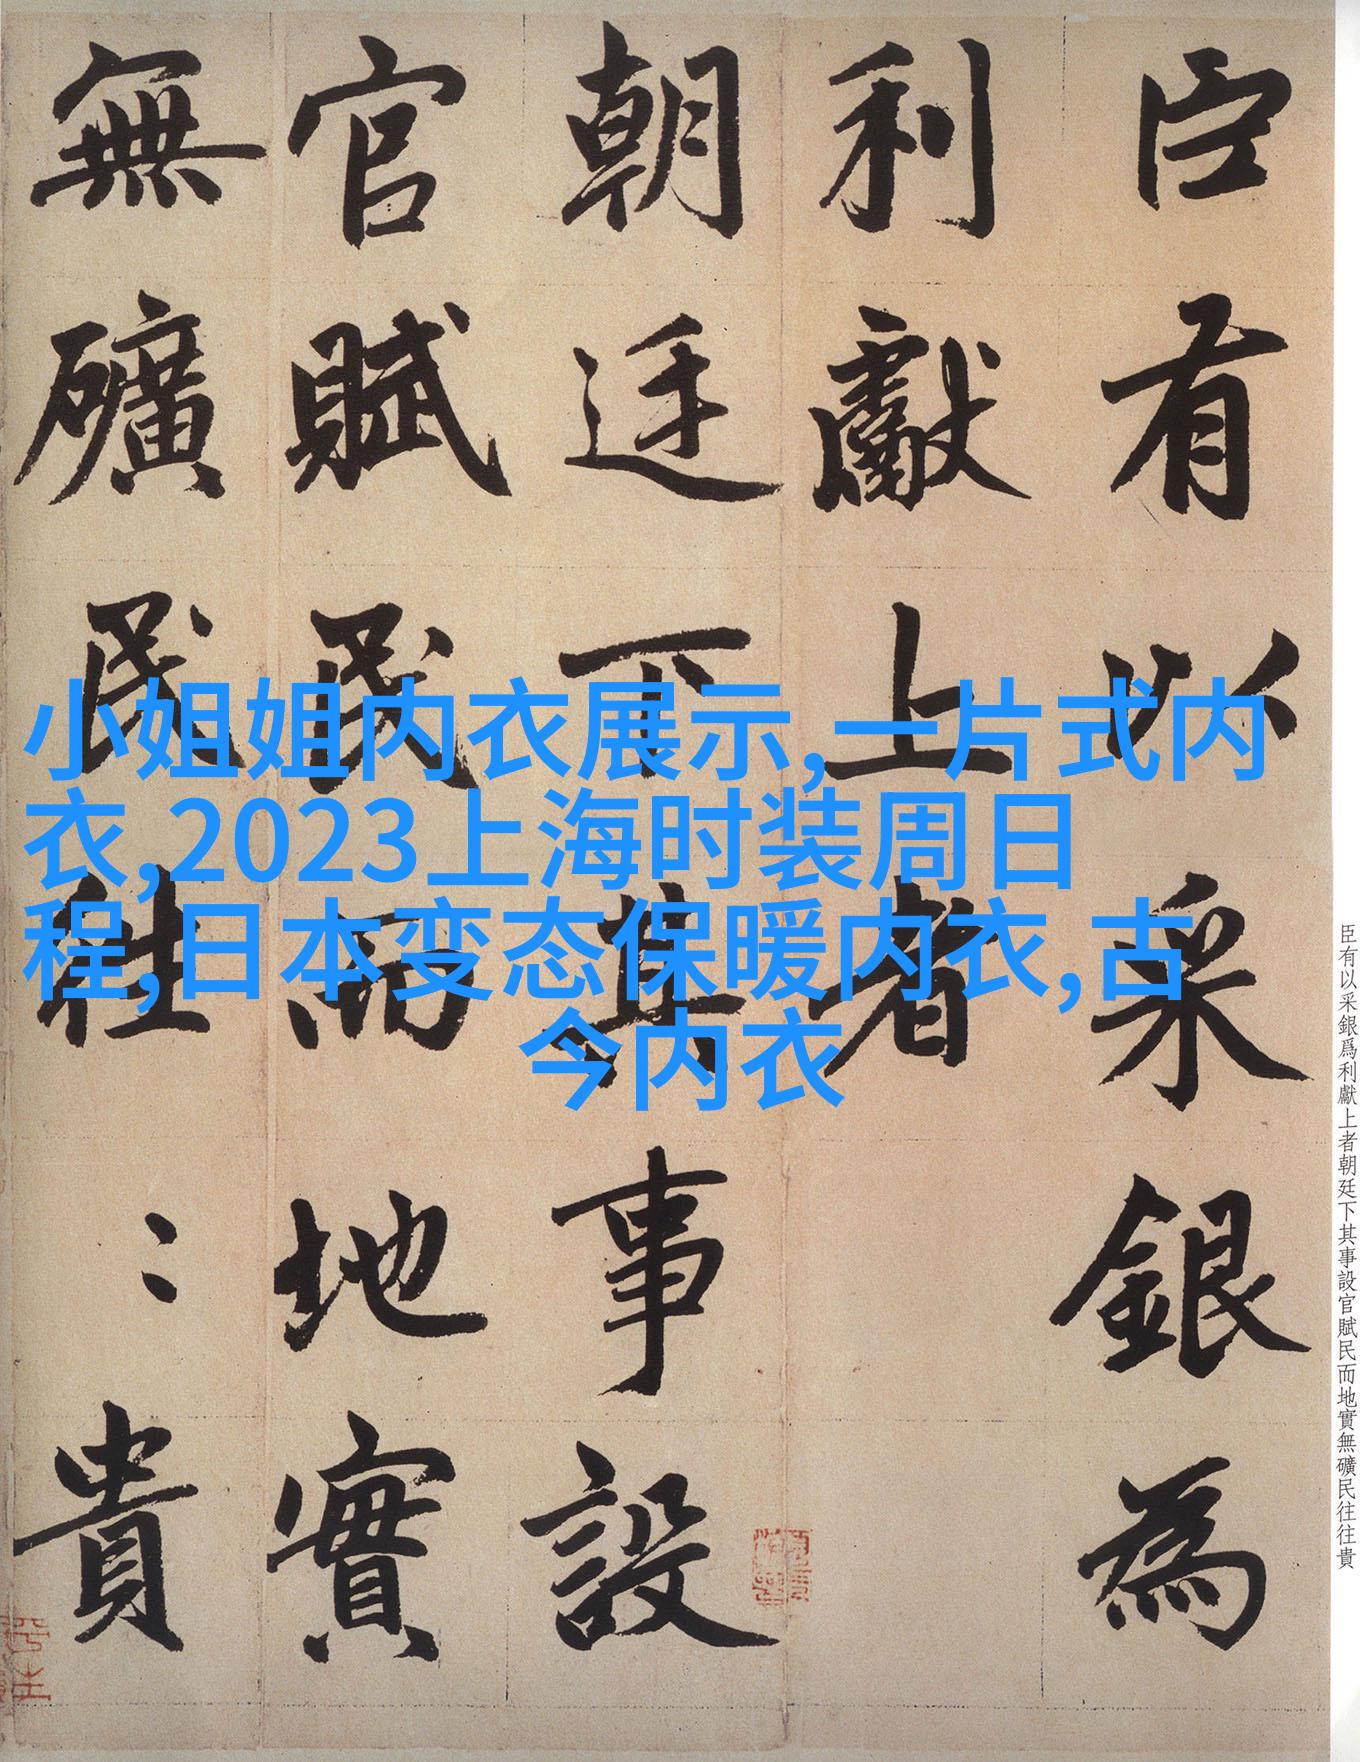 臣有以采銀為
利獻上者
朝廷下其事設
官賦民而地實
無礦民往〻貴
小姐姐内衣展示,一片式内
衣,2023上海时装周日
程,日本变态保暖内衣,古
今内衣
臣有以采銀爲利獻上者朝廷下其事設官賦民而地實無礦民往往貴